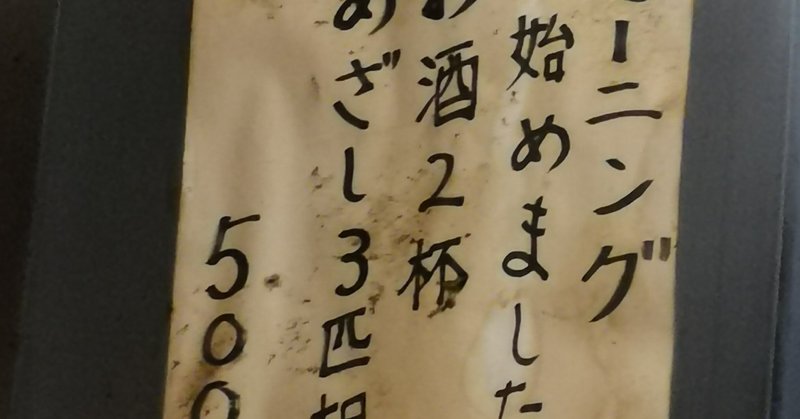 モーニング
始めました
お酒2杯
めざし3匹
500